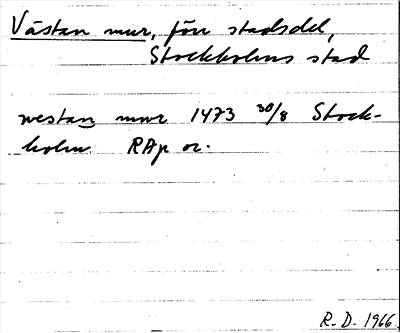 Västan mur, förr stadsdel,
Stockholms stad
westan mwr 1473 30/8 Stock-
holm RAp or.
R. D. 1966.